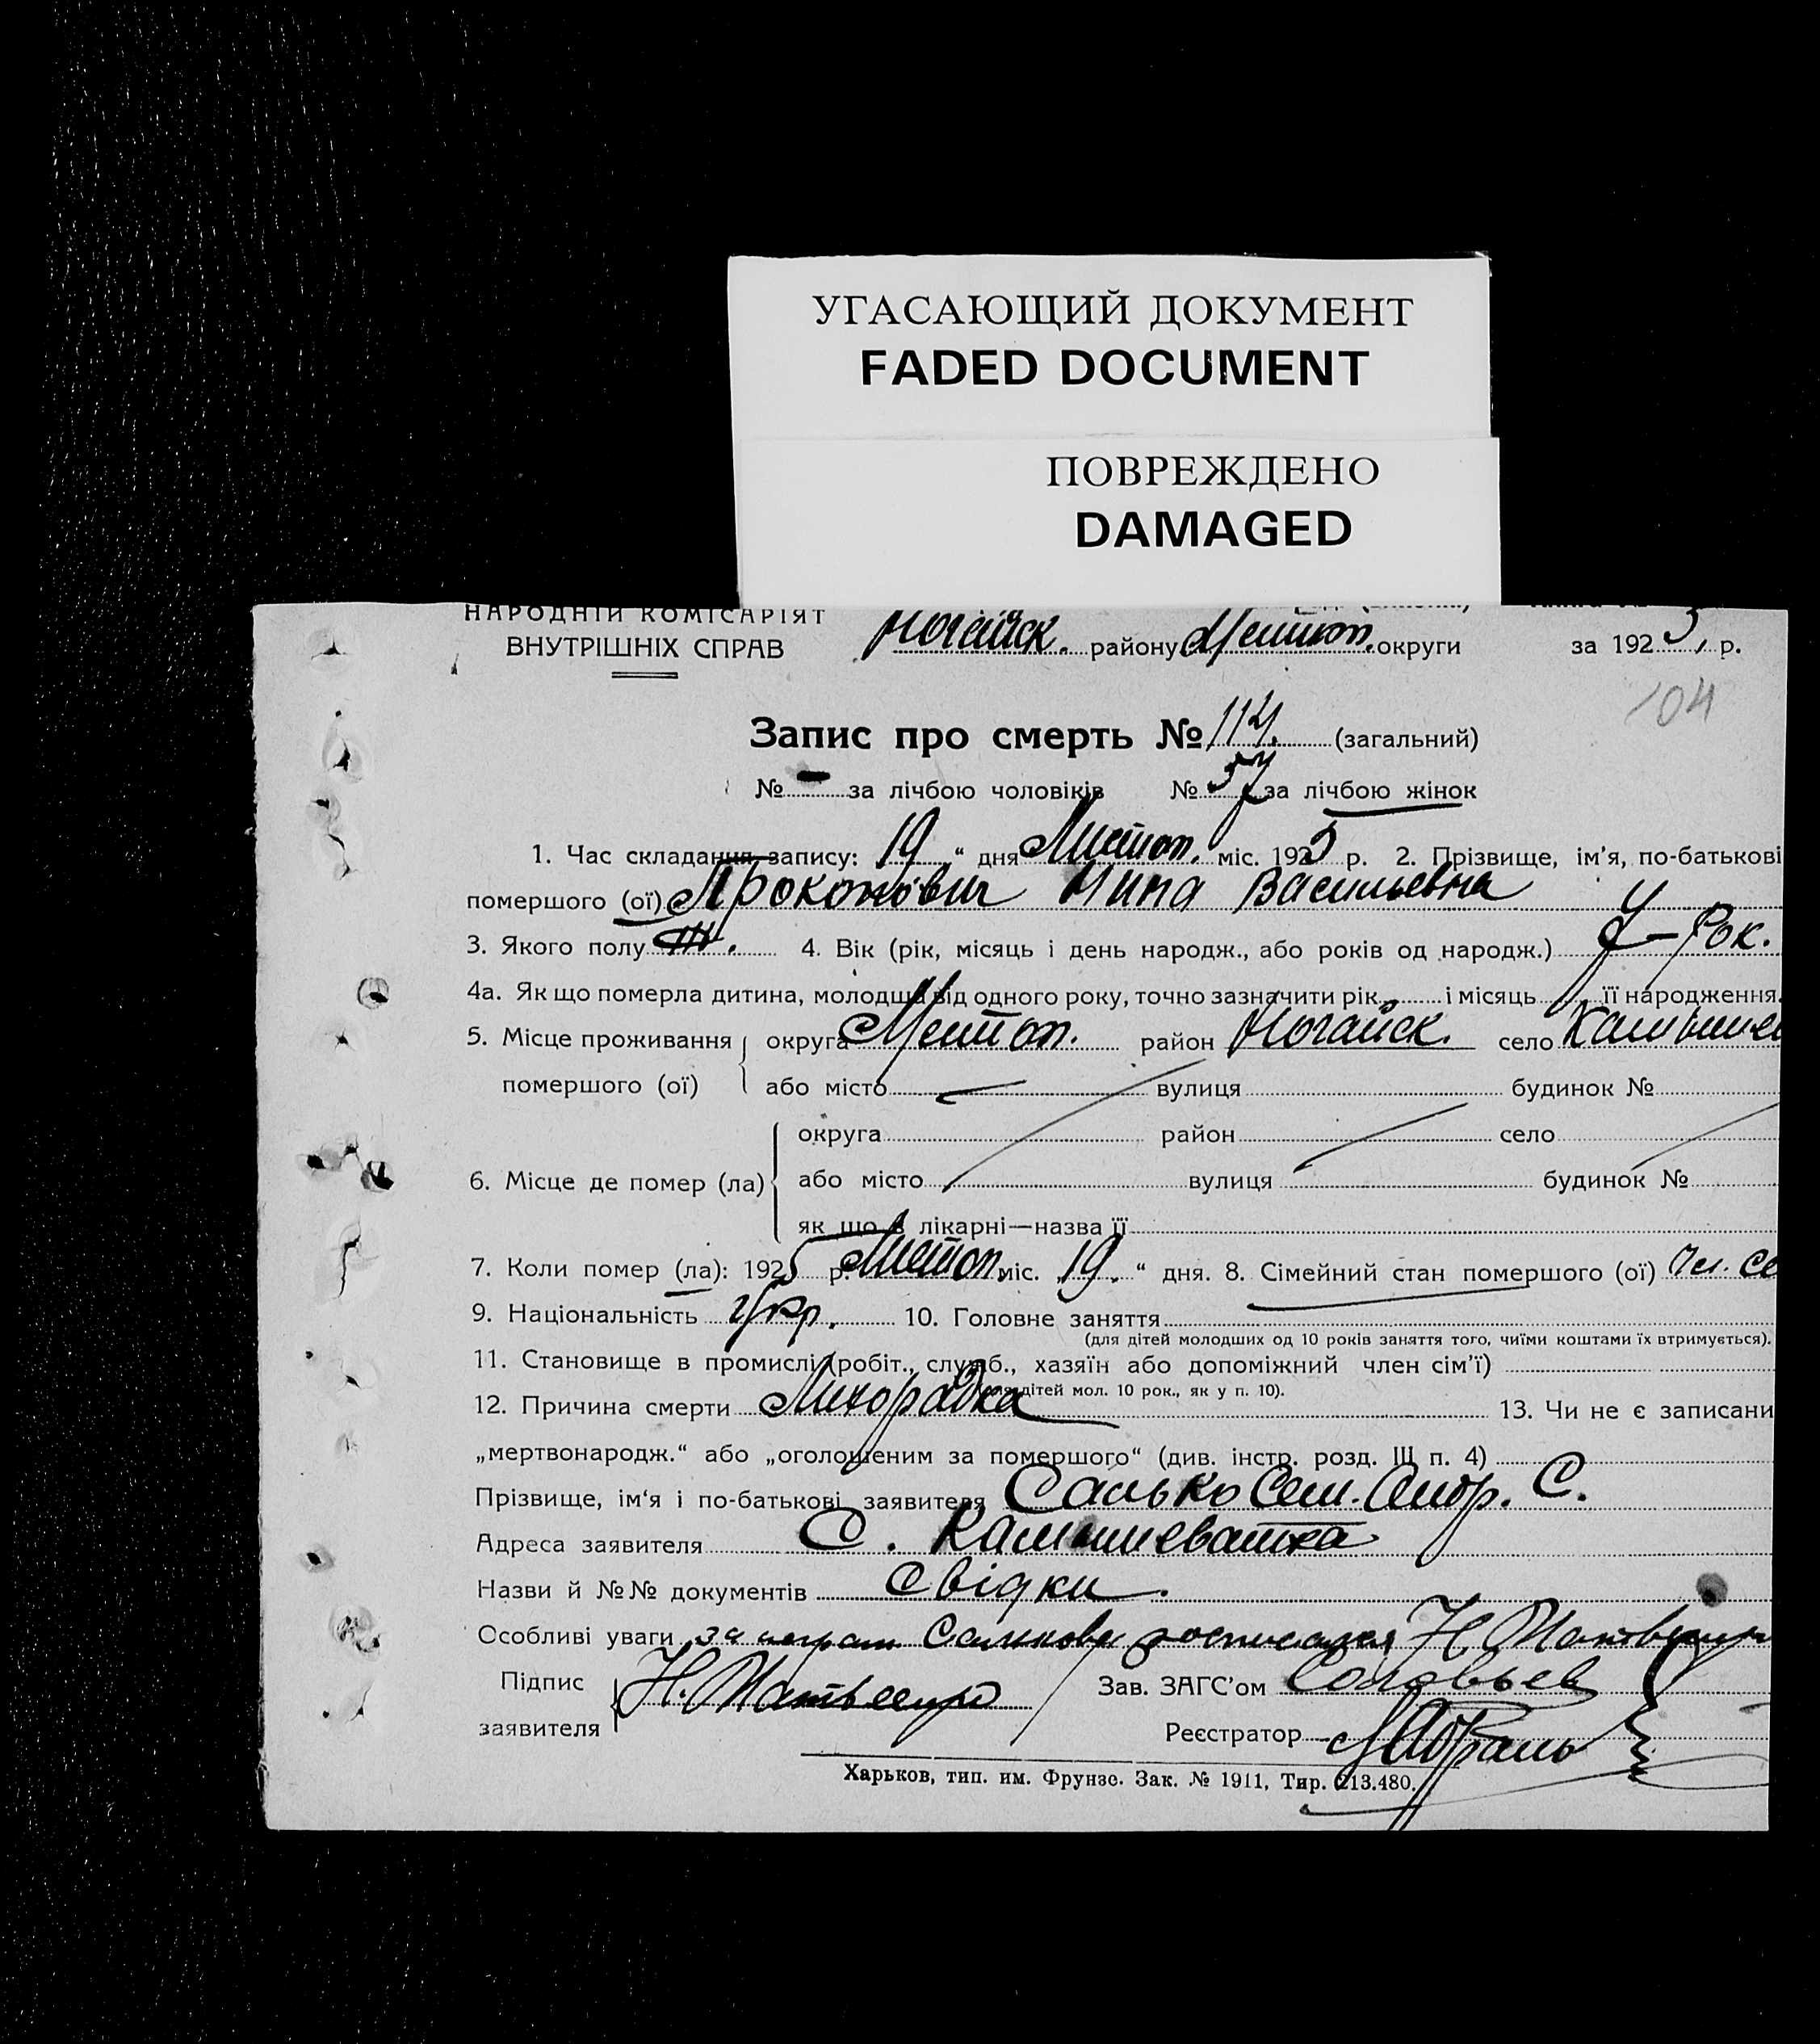 УГАСАЮЩИЙ ДОКУМЕНТ
FADED DOCUMENT
ПОВРЕЖДЕНО
DAMAGED
НАРОДНІЙ КОМІСАРІЯТ
ВНУТРІШНІХ СПРАВ
Ногайск. району Мелитоп. округи за 1925 р.
104
Запис про смерть № 114. (загальний)
№ – за лічбою чоловіків № 57 за лічбою жінок
1. Час складання запису: 19 " дня Листоп. міс. 1925 р. 2. Прізвище, ім'я, по-батькові
помершого (ої) Нина Васильевна
3. Якого полу Ж. 4. Вік (рік, місяць і день народж., або років од народж.) Рок.
4а. Як що померла дитина, молодша від одного року, точно зазначити рік і місяць її народження.
5. Місце проживання помершого (ої) округа район Ногайск. село
або місто вулиця будинок №
6. Місце де помер (ла) округа район село
або місто вулиця будинок №
як що в лікарні—назва її
7. Коли помер (ла): 1925 р. Листоп. міс. 19. " дня. 8. Сімейний стан помершого (ої) Чл. се
9. Національність Укр. 10. Головне заняття
(для дітей молодших од 10 років заняття того, чиїми коштами їх втримується).
11. Становище в промислі (робіт., служб., хазяїн або допоміжний член сім'ї)
(для дітей мол. 10 рок., як у п. 10).
12. Причина смерти Лихорадка 13. Чи не є записани
„мертвонародж.“ або „оголошеним за помершого“ (див. інстр. розд. III п. 4)
Прізвище, ім'я і по-батькові заявителя Салько С.
Адреса заявителя С. Камышеватка
Назви й №№ документів Свідки.
Особливі уваги за неграм. росписался Н.
Підпис заявителя Н. Зав. ЗАГС'ом Соловьев
Реєстратор
Харьков, тип. им. Фрунзе. Зак. № 1911, Тир. 213.480.